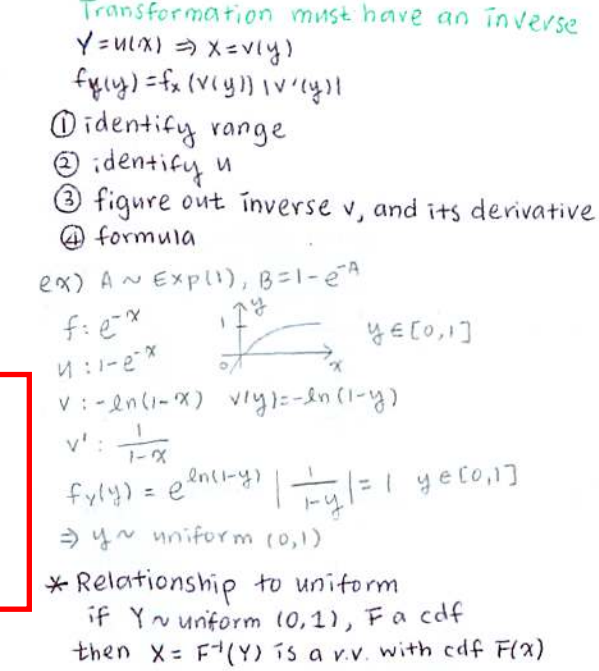 Transformation must have an inverse
Y = u(x) ⇒ x = v(y)
fy(y) = fx (v(y)) |v'(y)|
① identify range
② identify u
③ figure out inverse v, and its derivative
④ formula
ex) A ~ Exp(1), B = 1 - e^-A
f: e^-x
1 y
y ∈ [0,1]
u: 1 - e^-x
0 x
v: -ln(1-x) v(y) = -ln(1-y)
v': 1/(1-x)
fY(y) = e^ln(1-y) |1/(1-y)| = 1 y ∈ [0,1]
⇒ y ~ uniform (0,1)
* Relationship to uniform
if Y ~ uniform (0,1), F a cdf
then X = F^-1(Y) is a r.v. with cdf F(x)